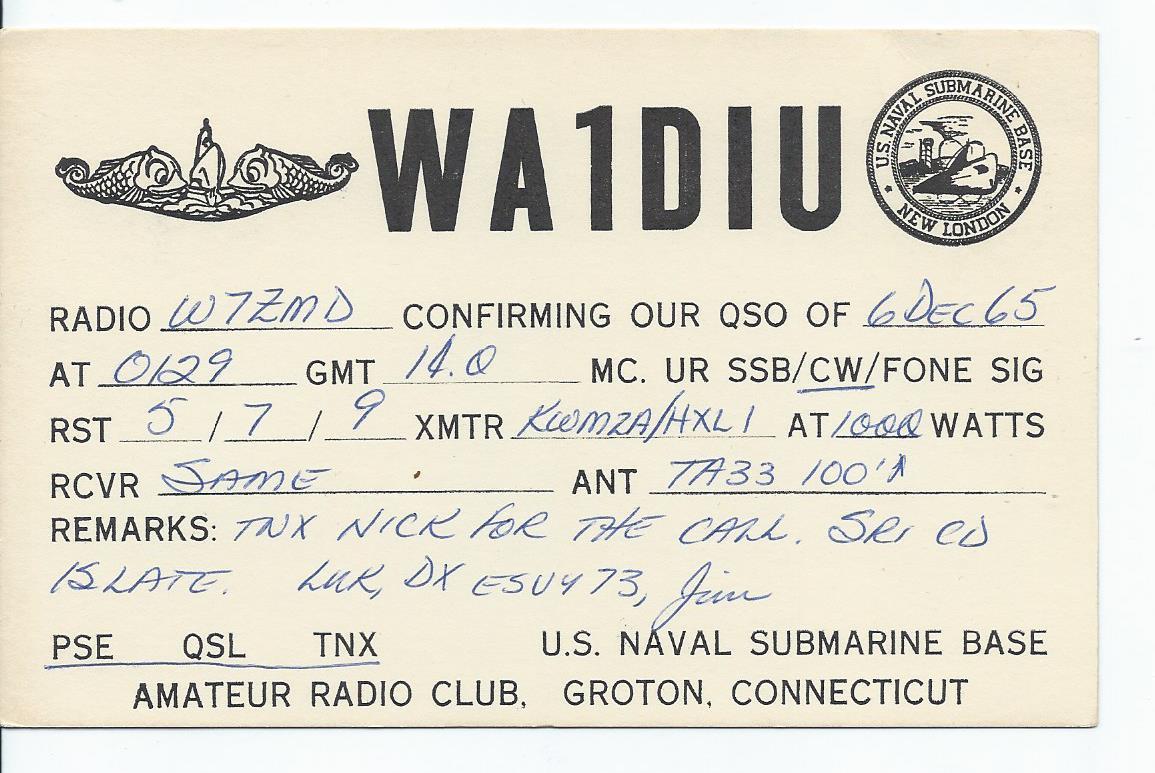 WA1DIU
U.S. NAVAL SUBMARINE BASE
NEW LONDON
RADIO W7ZMD CONFIRMING OUR QSO OF 6 DEC 65
AT 0129 GMT 14.0 MC. UR SSB/CW/FONE SIG
RST 5 / 7 / 9 XMTR KWM2A/HXL1 AT 1000 WATTS
RCVR SAME ANT TA33 100'
REMARKS: TNX NICK FOR THE CALL. SRI CD
IS LATE. LUK, DX ES 73, Jim
PSE QSL TNX U.S. NAVAL SUBMARINE BASE
AMATEUR RADIO CLUB, GROTON, CONNECTICUT